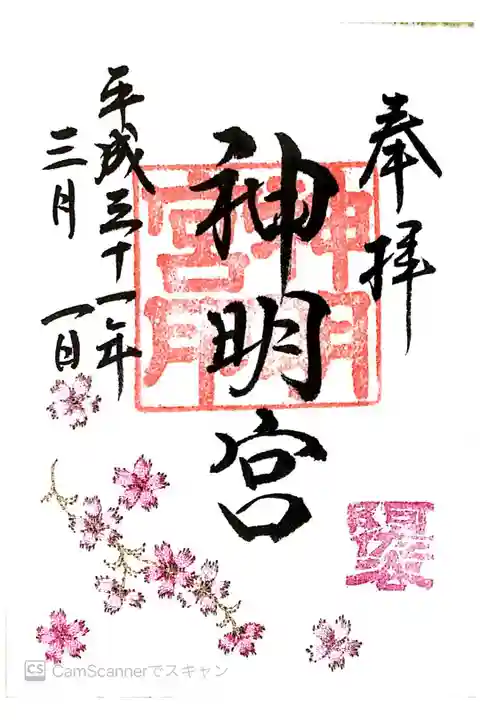 奉拝
神明宮
平成三十一年
三月一日
CS CamScannerでスキャン